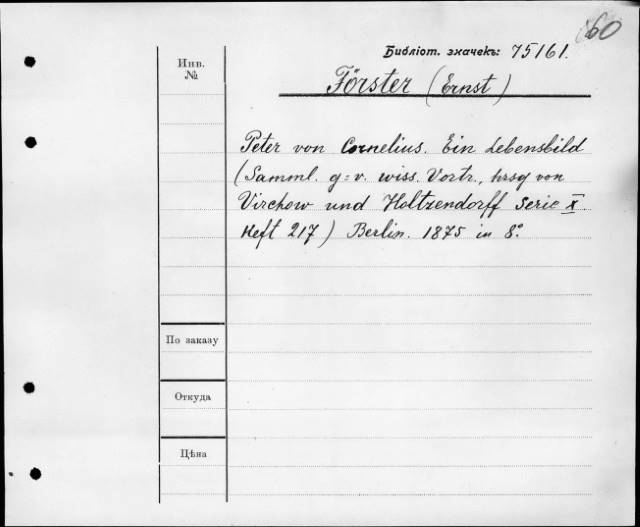 60
Библіот. значекъ: 75161.
Инв. №
Förster (Ernst)
Peter von Cornelius. Ein Lebensbild
(Samml. g=v. wiss. Vortr., hrsg von
Virchow und Holtzendorff Serie X.
Heft 217) Berlin. 1875 in 8°.
По заказу
Откуда
Цѣна